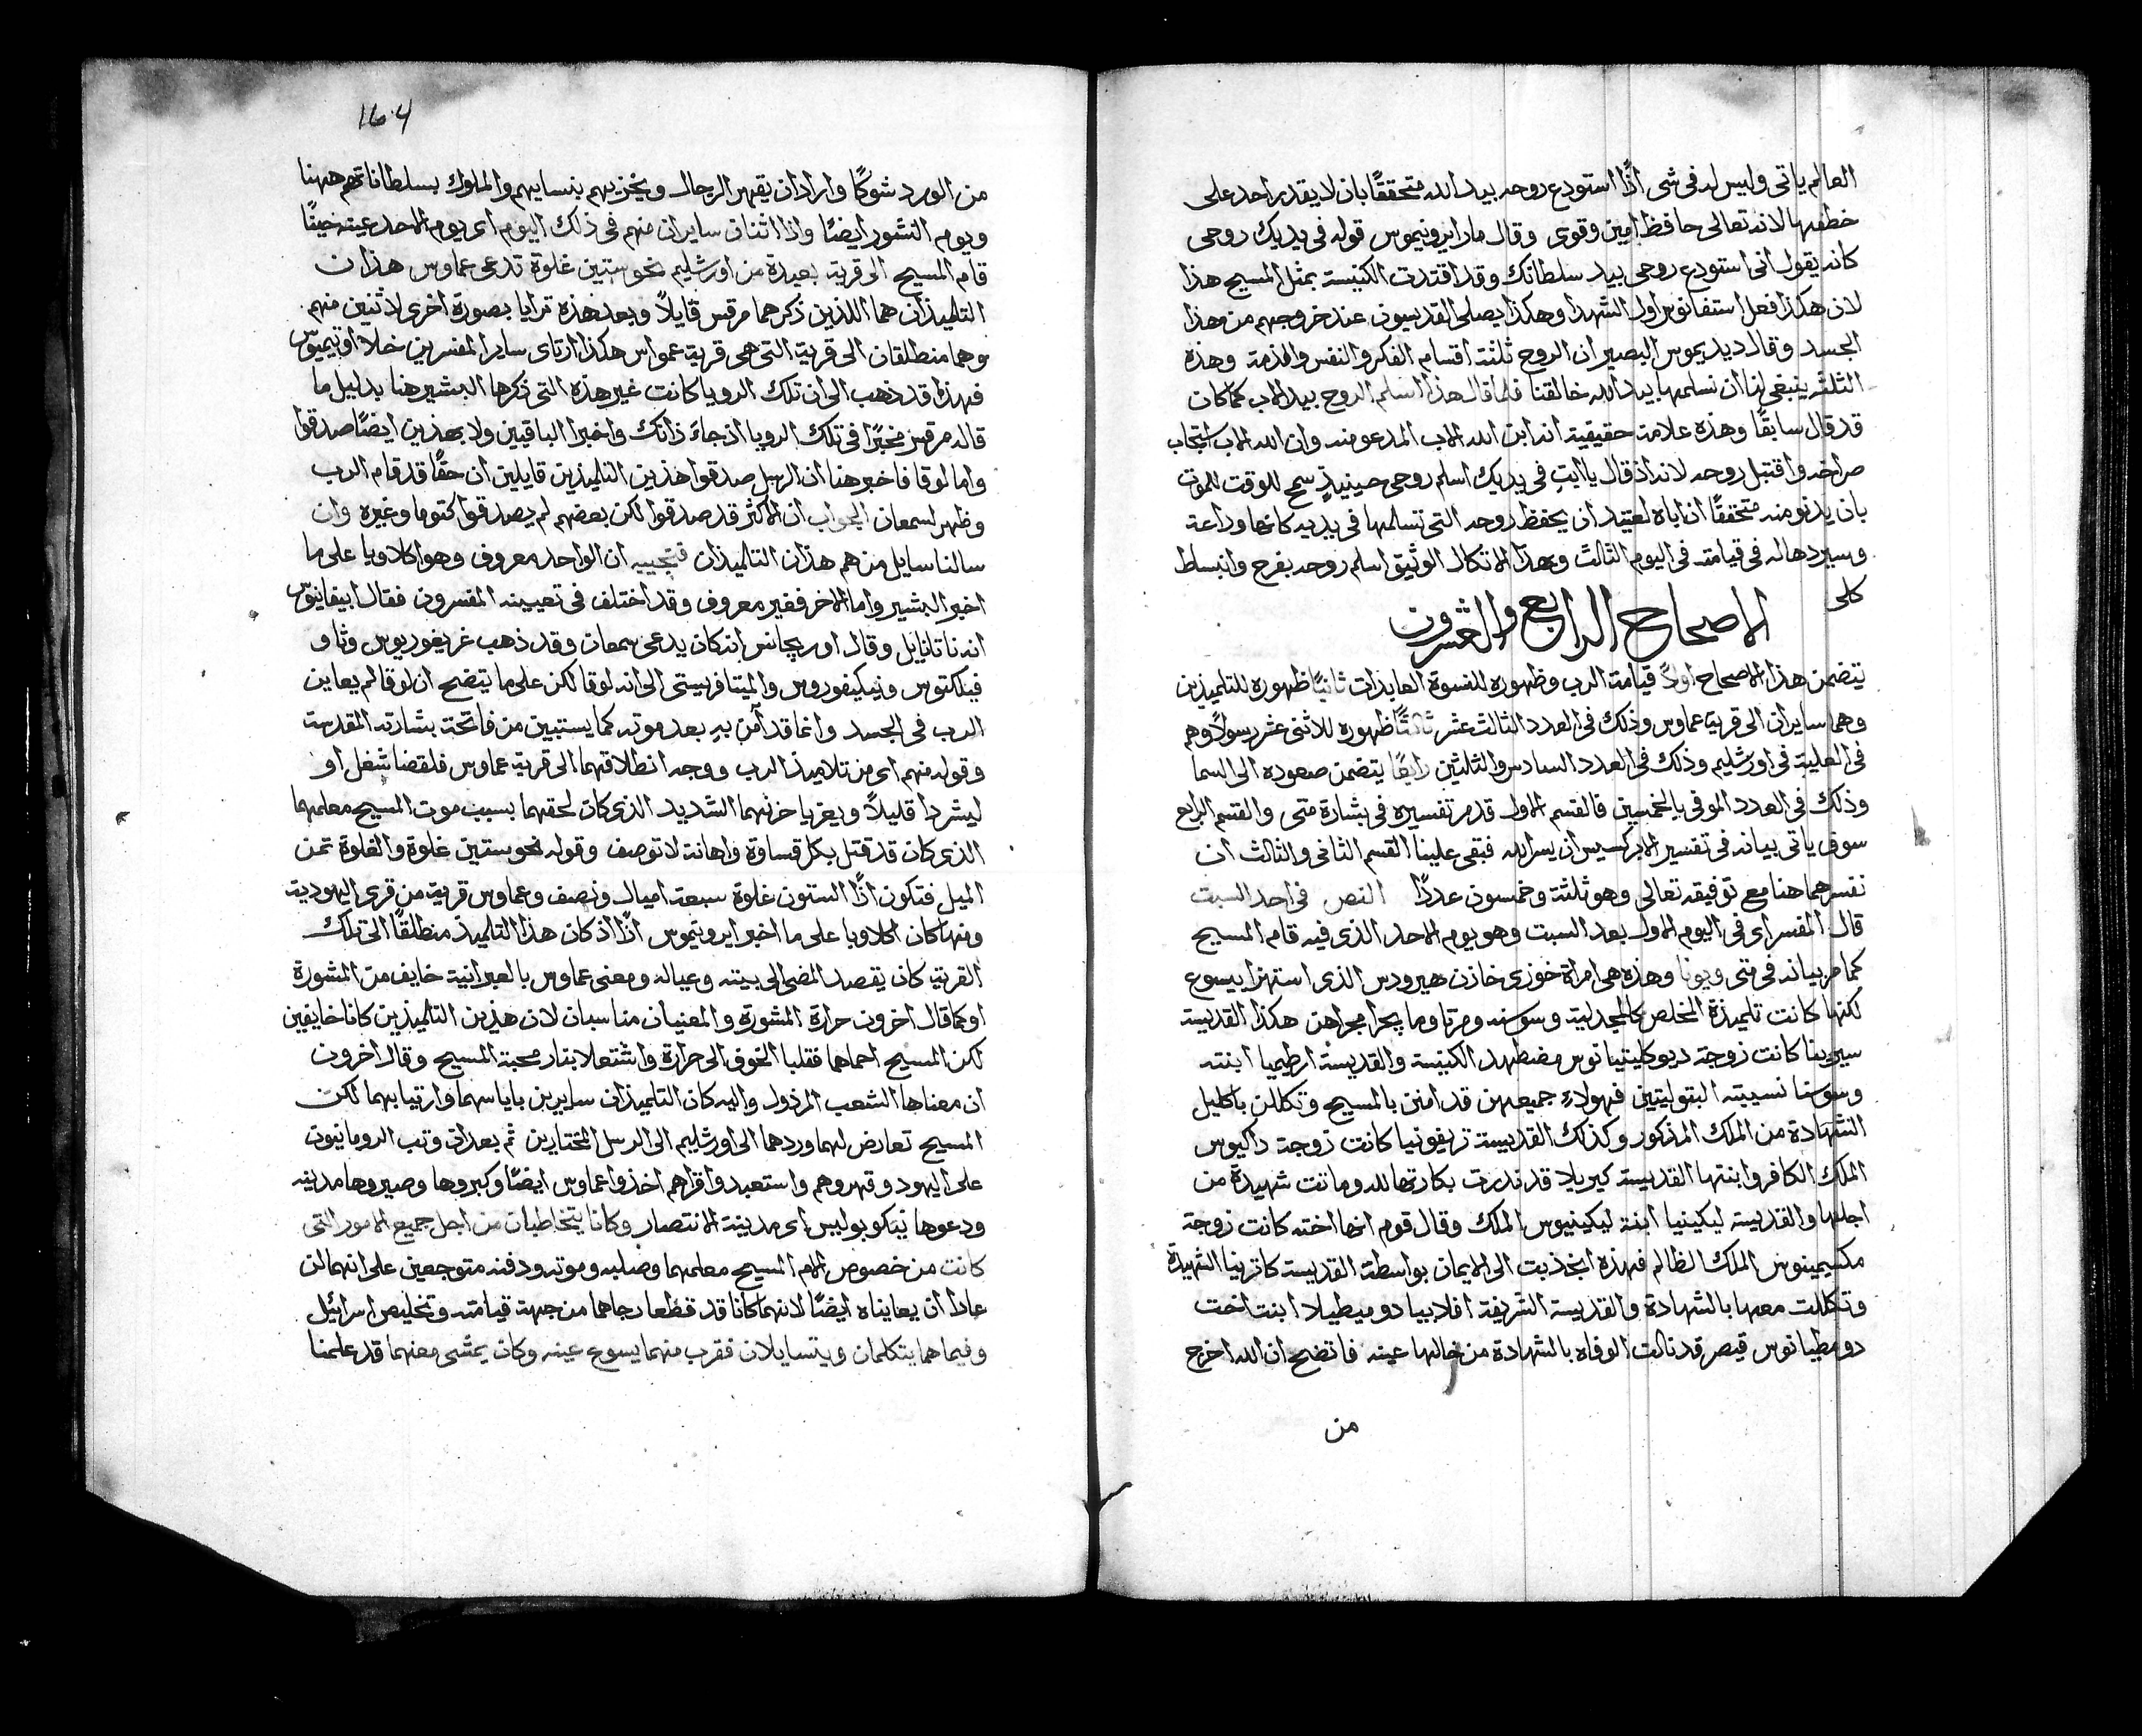 العالم ياتى وليس له فى شى اذًا استودع روحه بيد الله متحققًا بان لا يقدر احد على
خطفها لانه تعالى حافظ امين وقوى وقال مار ايرونيموس قوله فى يديك روحى
كانه يقول انى استودع روحى بيد سلطانك وقد اقتدت الكنيسة بمثل المسيح هذا
لان هكذا فعل استفانوس اول الشهدا وهكذا يصلى القديسون عند خروجهم من هذا
الجسد وقال ديديموس البصير ان الروح ثلثة اقسام الفكر والنفس والخدمة وهذه
الثلثه ينبغى لنا ان نسلمها بيد الله خالقنا فلما قال هذا اسلم الروح بيد الاب كما كان
قد قال سابقًا وهذه علامة حقيقية انه ابن الله الاب المدعو منه وان الله الاب استجاب
صراخه واقتبل روحه لانه اذ قال يا ابتِ فى يديك اسلم روحى حينيذٍ سمح للوقت للموت
بان يدنو منه متحققًا ان اباه لعتيد ان يحفظ روحه التى تسلمها فى يديه كانها وداعة
وسيردها له فى قيامته فى اليوم الثالث وبهذا الاتكال الوثيق اسلم روحه بفرح وانبساط
كلى
الاصحاح الرابع والعشرون
يتضمن هذا الاصحاح اولاً قيامة الرب وظهوره للنسوة العابدات ثانيًا ظهوره للتلميذين
وهما سايران الى قرية عماوس وذلك فى العدد الثالث عشر ثالثًا ظهوره للاثنى عشر رسولاً وهم
فى العلية فى اورشليم وذلك فى العدد السادس والثلثين رابعًا يتضمن صعوده الى السما
وذلك فى العدد الموفى بالخمسين فالقسم الاول قد مر تفسيره فى بشارة متى والقسم الرابع
سوف ياتى بيانه فى تفسير الابركسيس ان يسر الله فبقى علينا القسم الثانى والثالث ان
نفسرهما هنا مع توفيقه تعالى وهو ثلثة وخمسون عددًا النص فى احد السبت
قال المفسر اى فى اليوم الاول بعد السبت وهو يوم الاحد الذى فيه قام المسيح
كما مر بيانه فى متى ويونا وهذه هى امراة خوزى خازن هيرودس الذى استهزا بيسوع
لكنها كانت تلميذة المخلص كالمجدلية وسوسنه ومرتا وما يجرا مجراهن هكذا القديسة
سيرينا كانت زوجة ديوكليتيانوس مضطهد الكنيسة والقديسة ارطيميا ابنته
وسوسنا نسيبته البتوليتين فهولاءِ جميعهن قد امنن بالمسيح وتكللن باكليل
الشهادة من الملك المذكور وكذلك القديسة تريفونيا كانت زوجة داكيوس
الملك الكافر وابنتها القديسة كيريلا قد نذرت بكارتها لله وماتت شهيدة من
اجلها والقديسة ليكينيا ابنة ليكينيوس الملك وقال قوم انها اخته كانت زوجة
مكسيمينوس الملك الظالم فهذه انجذبت الى الايمان بواسطة القديسة كاترينا الشهيدة
وتكللت معها بالشهادة والقديسة الشريفة افلابيا دوميطيلا ابنت اخت
دومطيانوس قيصر قد نالت الوفاه بالشهادة من خالها عينه فاتضح ان الله اخرج
من
164
من الورد شوكًا واراد ان يقهر الرجال ويخزيهم بنسايهم والملوك بسلطاناتهم ههنا
ويوم النشور ايضًا واذا اثنان سايران منهم فى ذلك اليوم اى يوم الاحد عينه
قام المسيح الى قرية بعيدة من اورشليم نحو ستين غلوة تدعى عماوس هذان
التلميذان هما اللذين ذكرهما مرقس قايلاً وبعد هذه ترايا بصورة اخرى لاثنين منهم
وهما منطلقان الى قرية التى هى قرية عمواس هكذا ارتاى ساير المفسرين خلا اوتيميوس
فهذا قد ذهب الى ان تلك الرويا كانت غير هذه التى ذكرها البشير هنا بدليل ما
قاله مرقس مخبرًا فى تلك الرويا اذ جاءَ ذانك واخبرا الباقيين ولا بهذين ايضًا صدقوا
واما لوقا فاخبر هنا ان الرسل صدقوا هذين التلميذين قايلين ان حقًا قد قام الرب
وظهر لسمعان الجواب ان الاكثر قد صدقوا لكن بعضهم لم يصدقوا كتوما وغيره وان
سالنا سايل من هم هذان التلميذان فنجيبه ان الواحد معروف وهو اكلاوبا على ما
اخبر البشير واما الاخر فغير معروف وقد اختلف فى تعيينه المفسرون فقال ابيفانيوس
انه ناتانايل وقال اوريجانس انه كان يدعى سمعان وقد ذهب غريغوريوس وثاو
فيلكتوس ونيكيفوروس والميتافريستى الى انه لوقا لكن على ما يتضح ان لوقا لم يعاين
الرب فى الجسد وانما قد آمن بهِ بعد موته كما يستبين من فاتحة بشارته المقدسة
وقوله منهم اى من تلاميذ الرب ووجه انطلاقهما الى قرية عماوس فلقضا شغل او
ليشردا قليلاً ويعزيا حزنهما الشديد الذى كان لحقهما بسبب موت المسيح معلمهما
الذى كان قد قتل بكل قساوة واهانة لا توصف وقوله نحو ستين غلوة والغلوة ثمن
الميل فتكون اذًا الستون غلوة سبعة اميال ونصف وعماوس قرية من قرى اليهودية
ومنها كان اكلاوبا على ما اخبر ايرونيموس اذًا اذ كان هذا التلميذ منطلقًا الى تلك
القرية كان يقصد المضى الى بيته وعياله ومعنى عماوس بالعبرانية خايف من المشورة
او كما قال اخرون حرارة المشورة والمعنيان مناسبان لان هذين التلميذين كانا خايفين
لكن المسيح احماهما فقلبا الخوف الى حرارة واشتعلا بنار محبة المسيح وقال اخرون
ان معناها الشعب المرذول واليه كان التلميذان سايرين باياسهما وارتيابهما لكن
المسيح تعارض لهما وردهما الى اورشليم الى الرسل المختارين ثم بعد ان وثب الرومانيون
على اليهود وقهروهم واستعبدوا قراهم اخذوا عماوس ايضًا وكبروها وصيروها مدينه
ودعوها نيكوبوليس اى مدينة الانتصار وكانا يتخاطبان من اجل جميع الامور التى
كانت من خصوص الام المسيح معلمهما وصلبه وموته ودفنه متوجعين على انهما لن
عادا ان يعايناه ايضًا لانهما كانا قد قطعا رجاهما من جهة قيامته وتخليص اسرائيل
وفيما هما يتكلمان ويتسايلان فقرب منهما يسوع عينه وكان يمشى معهما قد علمنا